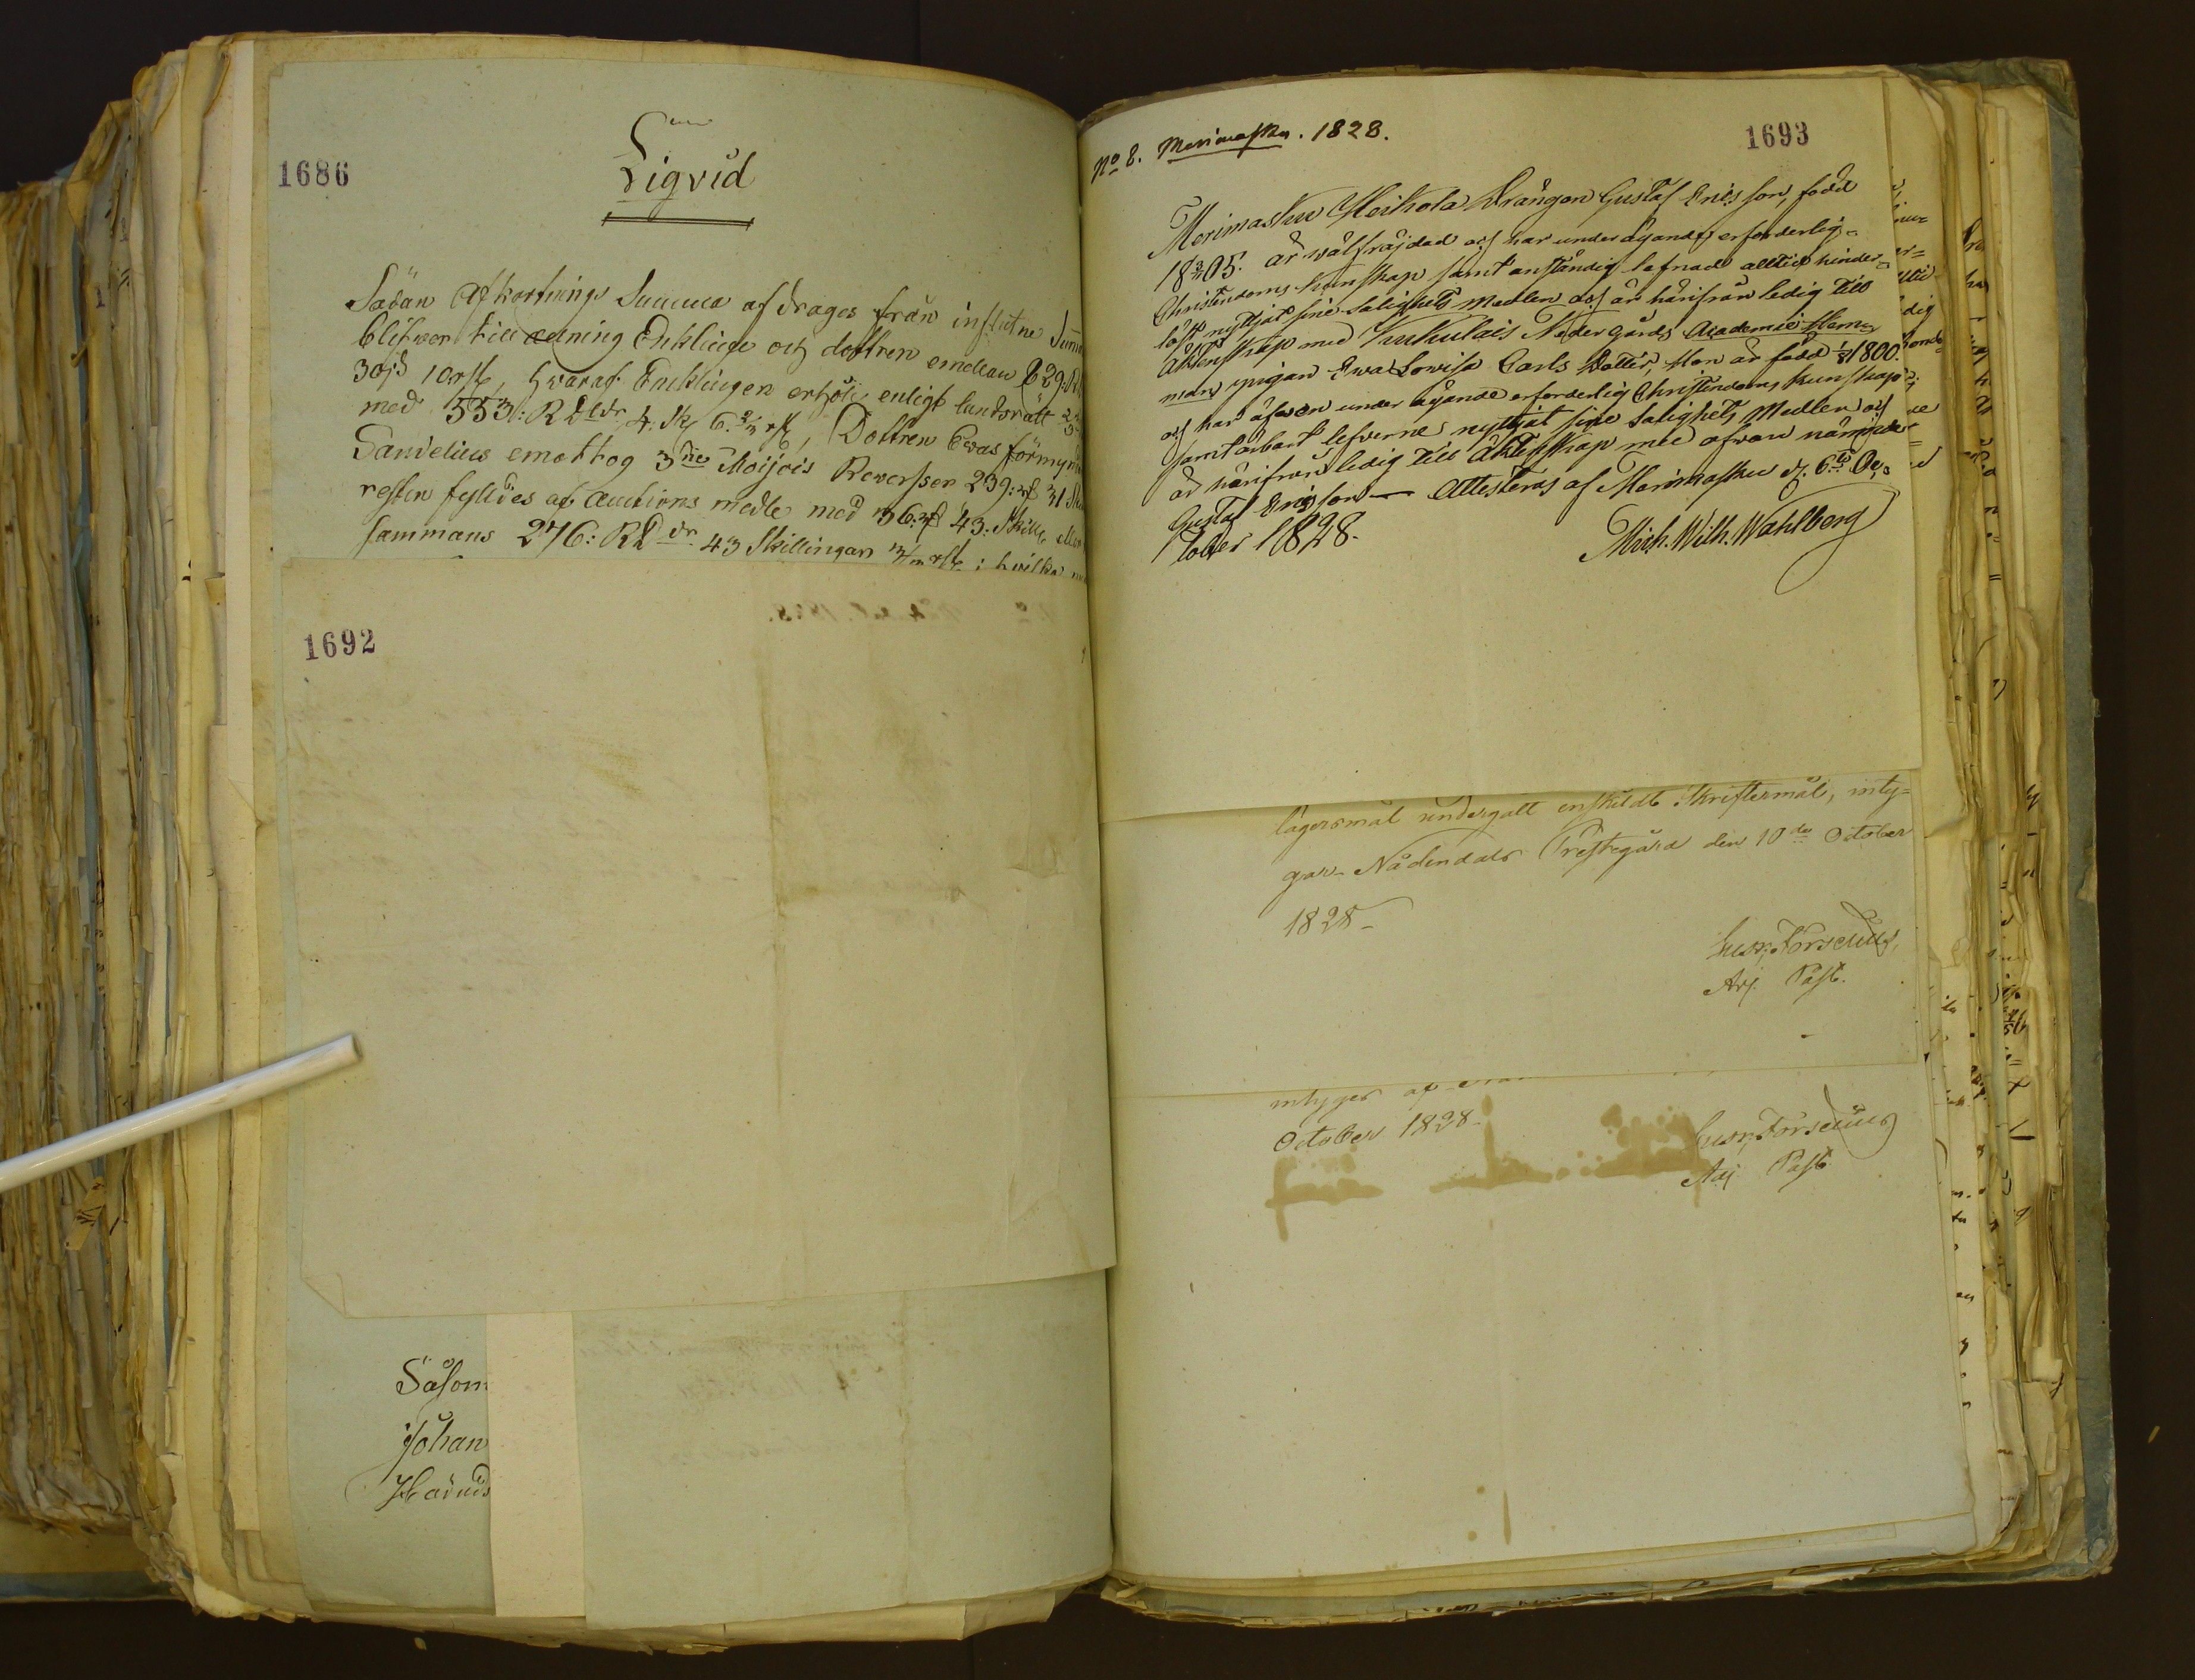 1686
Liqvid
Sådan Afkortnings Summa af drages från influtne Summ
blifver till delning Enklinge och dottren emellan 829: R
30 s 10 rst, hvaraf Enklingen erhöll enligt landsrätt 2/3
med 553: R Ddr 4 sk 6 2/3 rst, Dottren Evas förmyn
Sandelius emottog 3ne Moijois Reverser 239: rd 31 Sk
resten fylldes af Auctions medle med 36: rd 43: Skill, eller
sammans 276: R Ddr 43 Skillingar rst; hvilka
1692
Såsom
Johan
1693
No 8. Merimasku. 1828.
Merimasku Heikola Drängen Gustaf Ericsson, född
18 05. är välfräjdad och har under ägande erforderlig
Christendoms kunskap samt anständig lefnad alltid hinder-
löst nyttjat sine salighets medlen och är härifrån ledig till
Äktenskap med Kukulais Nedergårds Academie Hem-
mans pigan Ewa Lovisa Carls Dotter, Hon är född 1/8 1800.
och har äfwen under ägande erforderlig Christendoms kunskap
samt ärbart lefverne nyttjat sine Salighets Medlen och
är härifrån ledig till Äktenskap med ofwan nämnde
Gustaf Ericsson — Attesteras af Merimasku d. 6te Oc-
tober 1828.
Mich. Wilh. Wahlberg
lägersmål undergått enskildt Skriftermål, inty-
gar Nådendals Prestegård den 10de October
1828
Forselius
Adj. Past.
intyger af
October 1828.
Forselius
Adj Past.